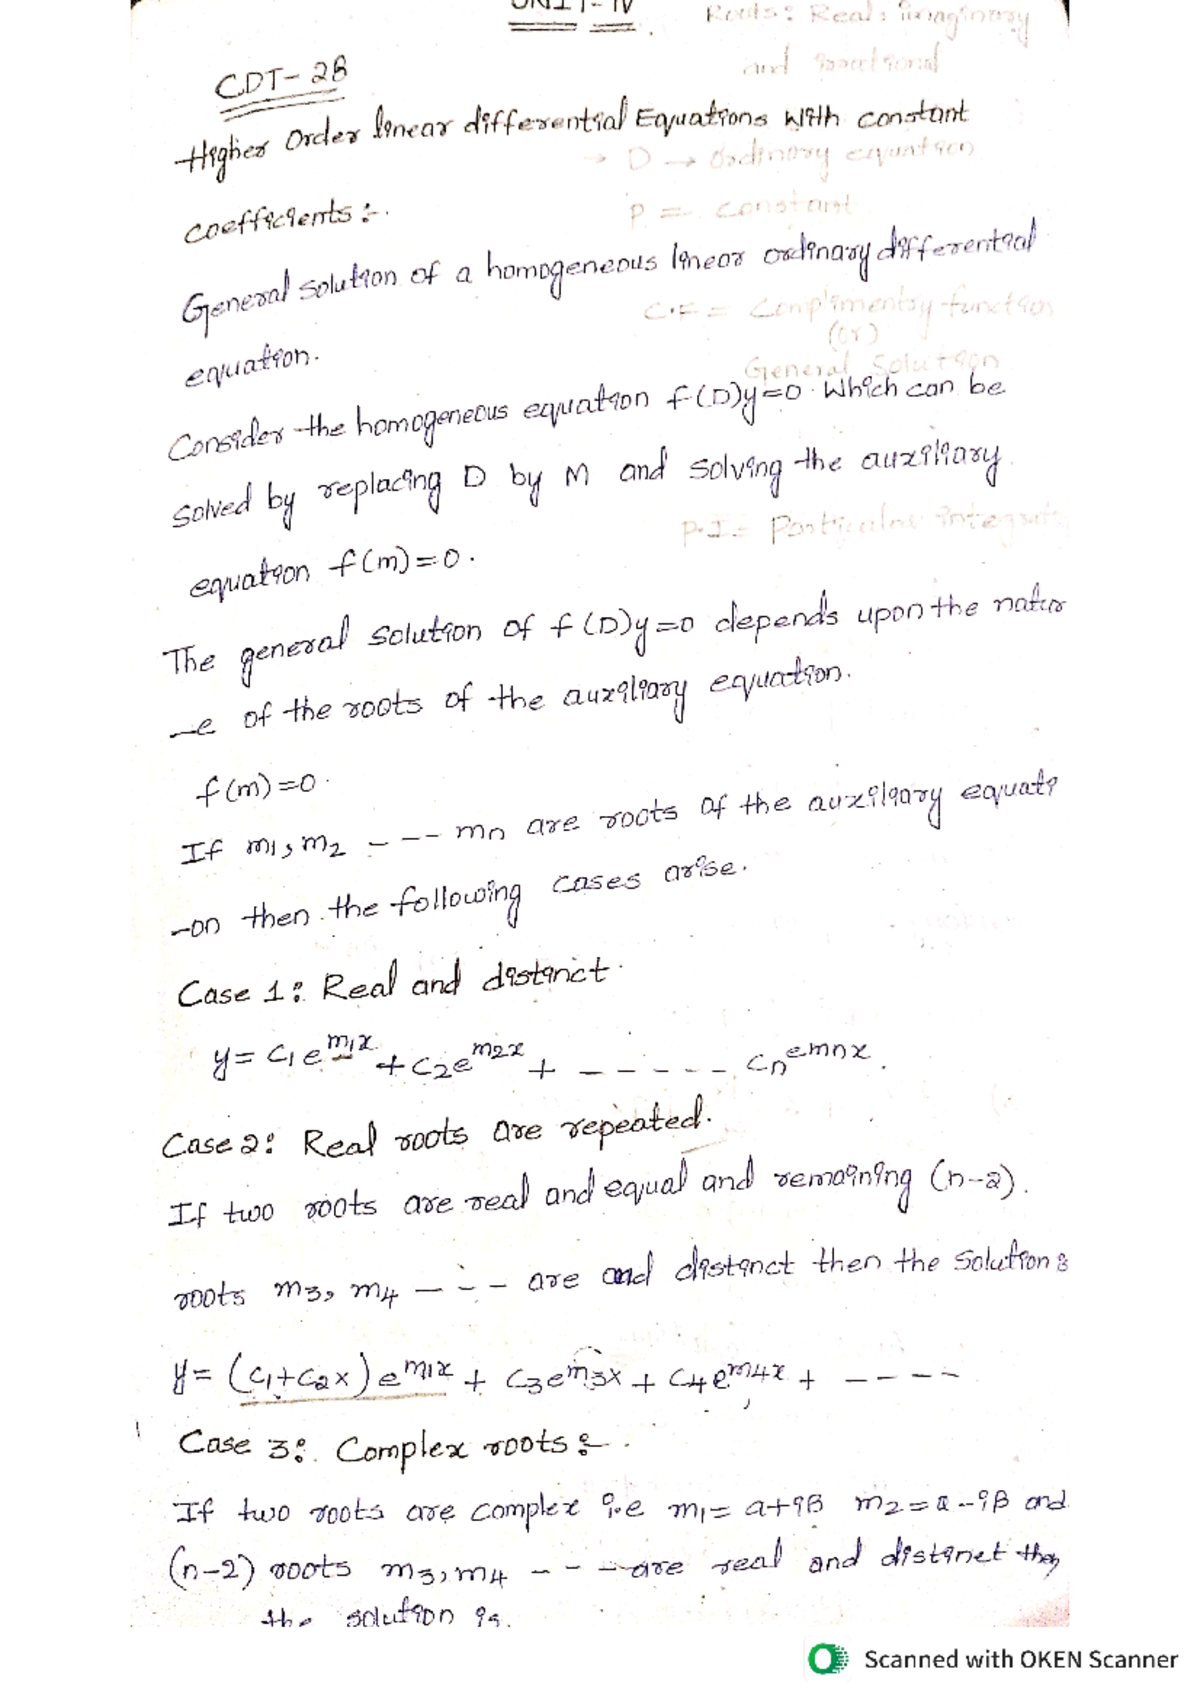 UNIT-IV
Roots: Real, imaginary
and irrational
CDT-2B
Higher Order linear differential Equations With constant
→ D → Ordinary equation
coefficients :-.
P = constant
General solution of a homogeneous linear ordinary differential
C.F = Complimentry function
(or)
equation.
General Solution
Consider the homogeneous equation f(D)y=0. Which can be
solved by replacing D by M and solving the auxiliary
P.I = Particular integrat
equation f(m)=0.
The general solution of f(D)y=0 depends upon the natur
-e of the roots of the auxiliary equation.
f(m)=0.
If m1, m2 - - - mn are roots of the auxiliary equati
-on then the following cases arise.
Case 1: Real and distinct.
y = c1 e^m1x + c2 e^m2x + - - - - - cn e^mnx.
Case 2: Real roots are repeated.
If two roots are real and equal and remaining (n-2).
roots m3, m4 - - - are and distinct then the solution :
y = (c1+c2x) e^m1x + c3 e^m3x + c4 e^m4x + - - - -
Case 3: Complex roots :-.
If two roots are complex i.e m1 = a+iB m2 = a-iB and
(n-2) roots m3, m4 - - - are real and distinct then
the solution is.
Scanned with OKEN Scanner